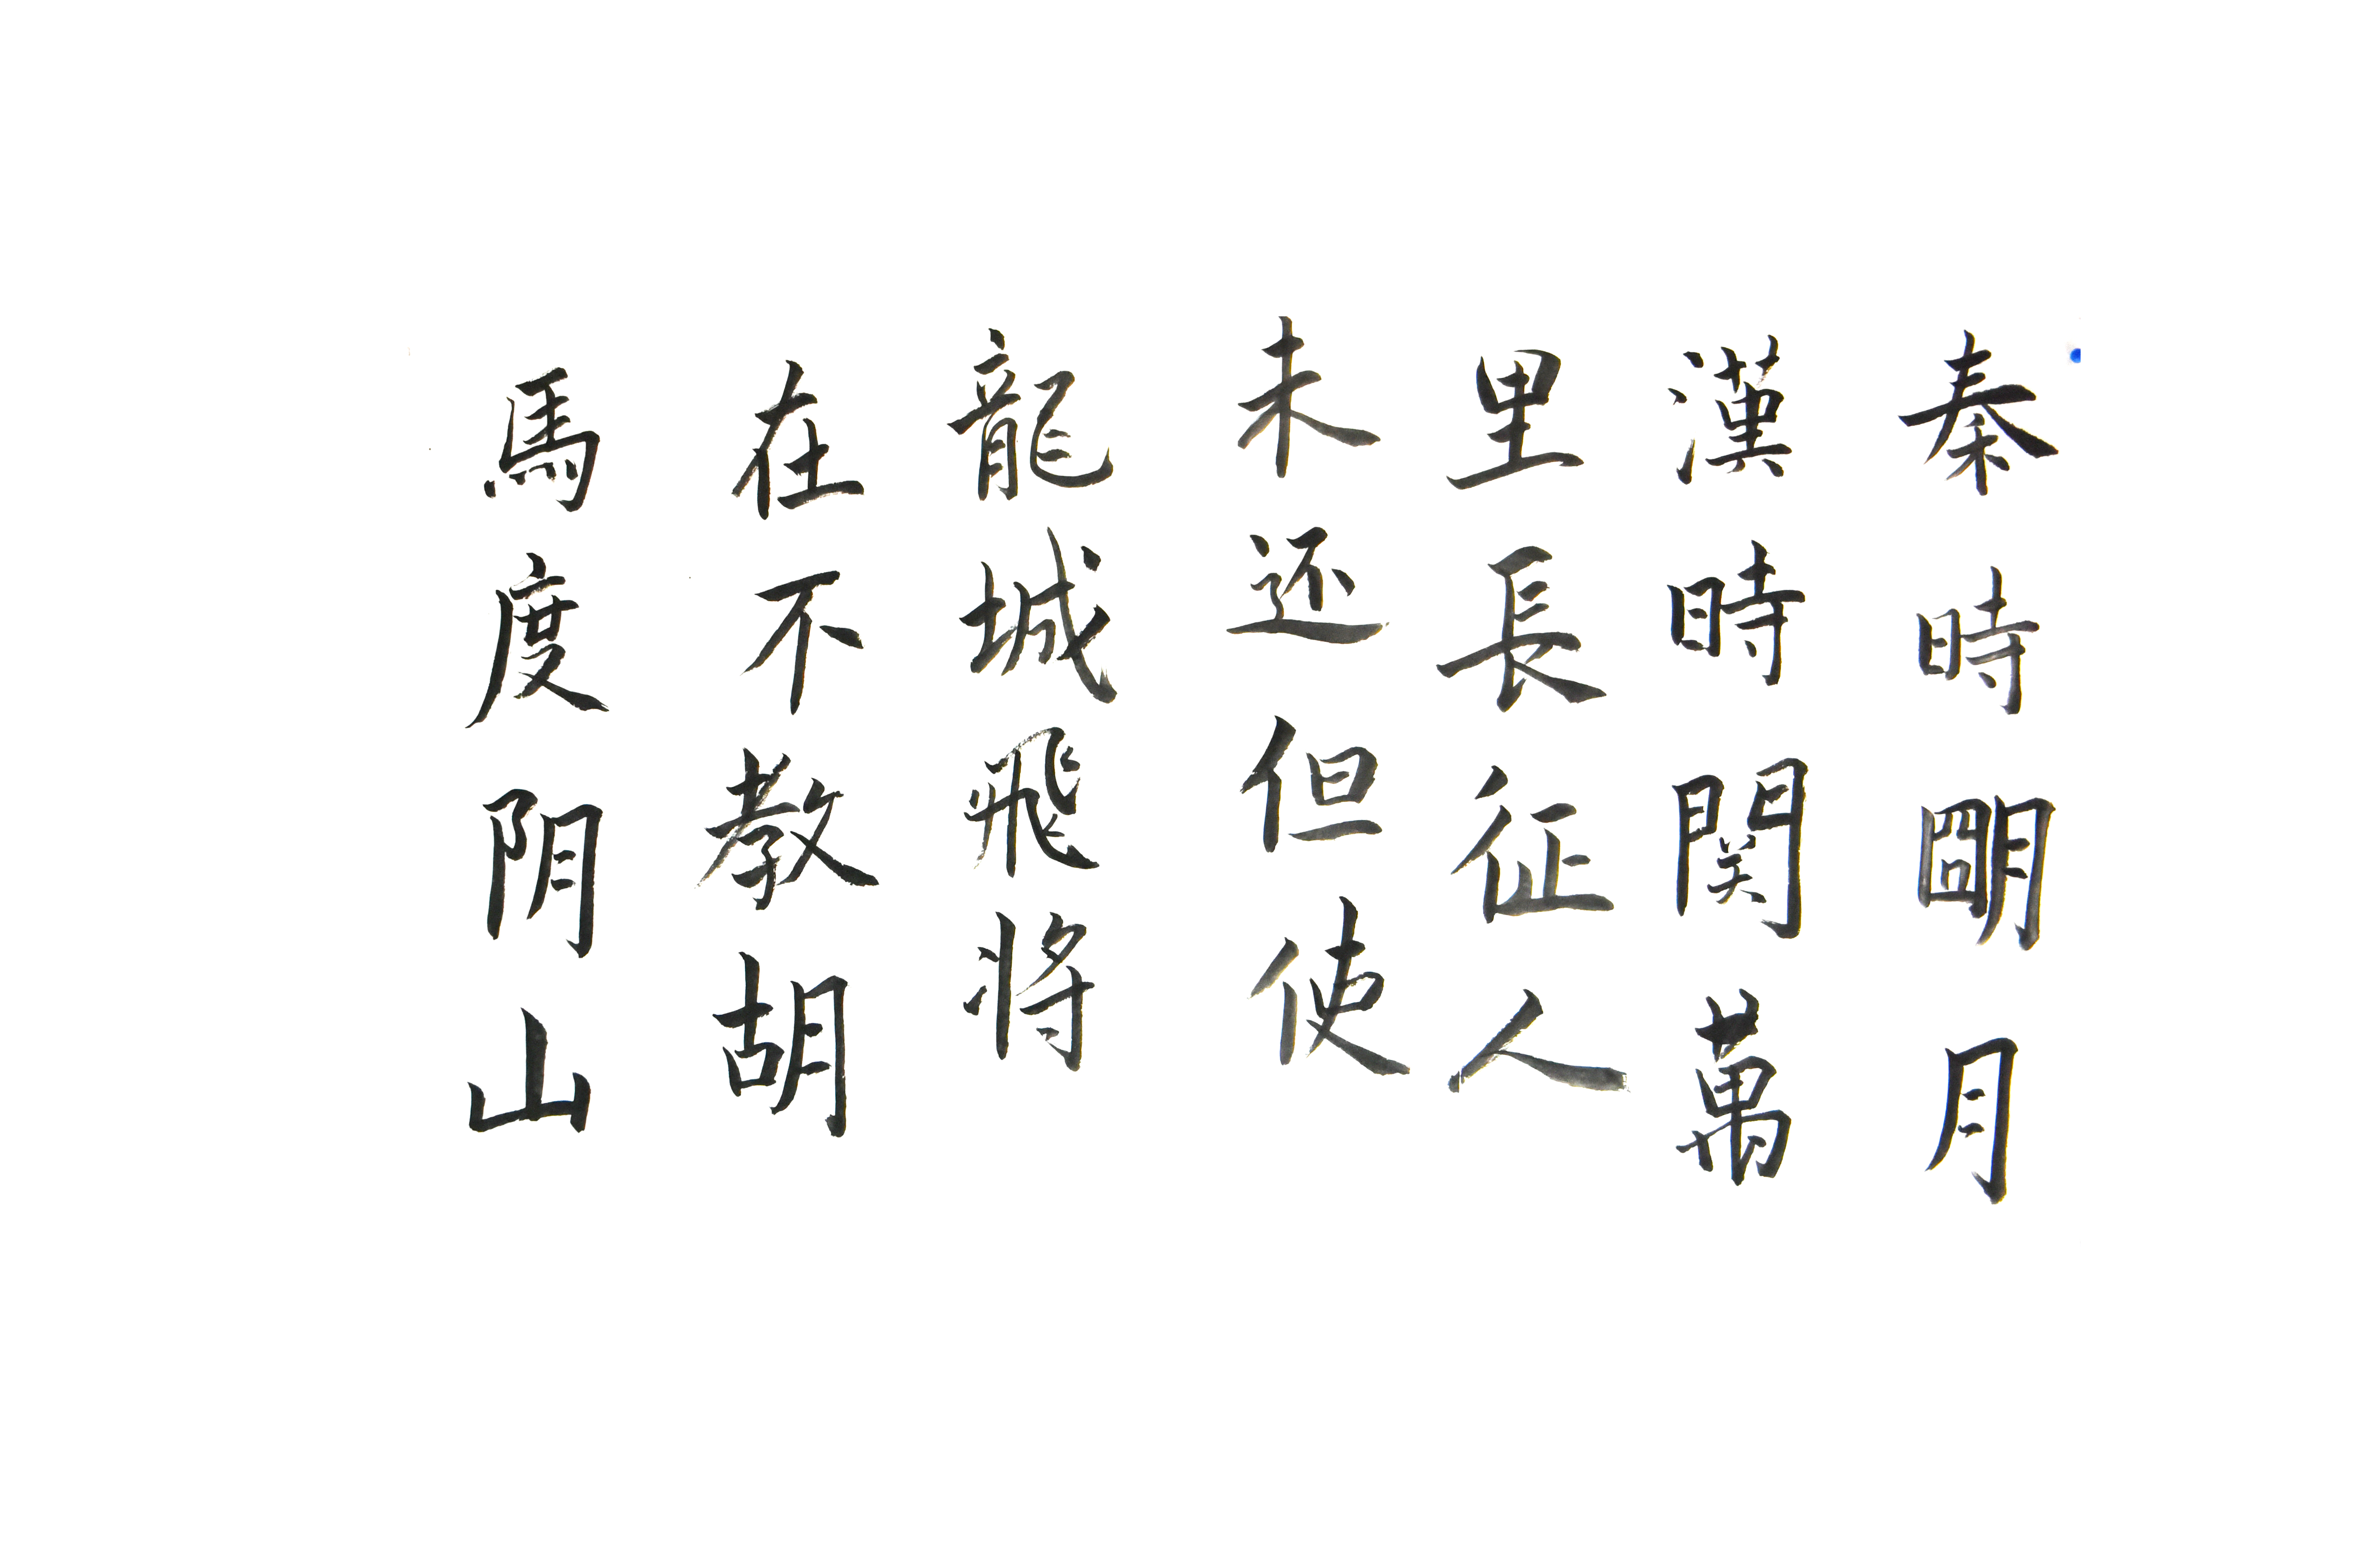 秦時朙月
漢時関萬
里長征人
未还但使
龍城飛將
在不教胡
馬度阴山